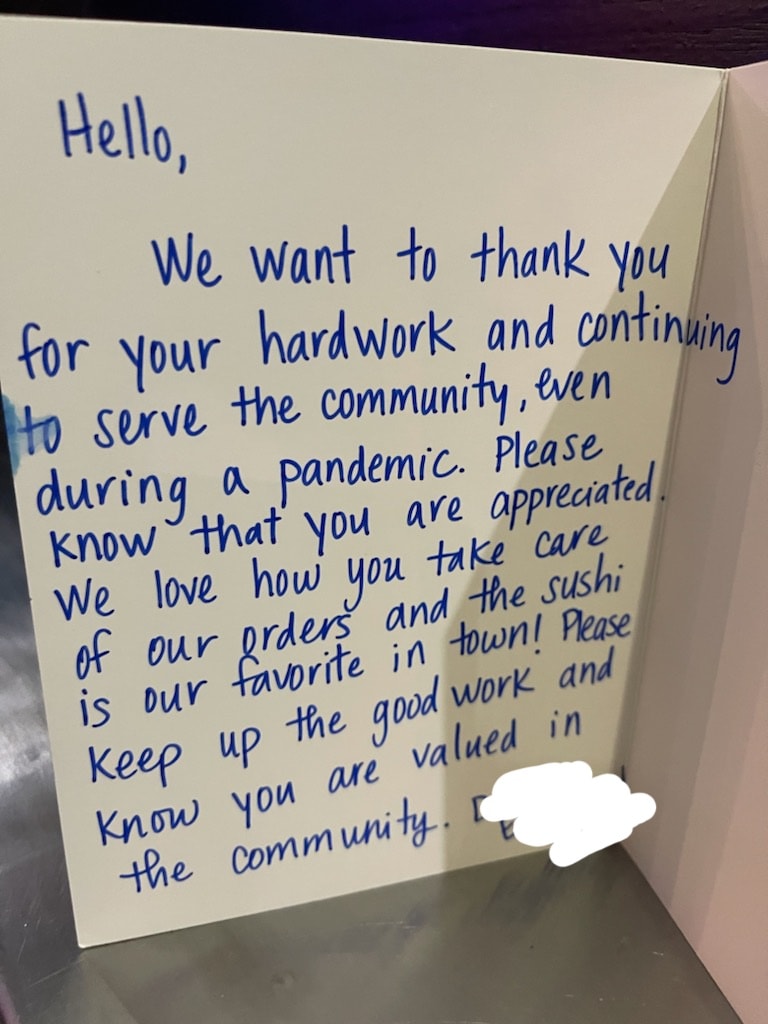 Hello,
We want to thank you
for your hardwork and continuing
to serve the community, even
during a pandemic. Please
know that you are appreciated.
We love how you take care
of our orders and the sushi
is our favorite in town! Please
keep up the good work and
know you are valued in
the community.